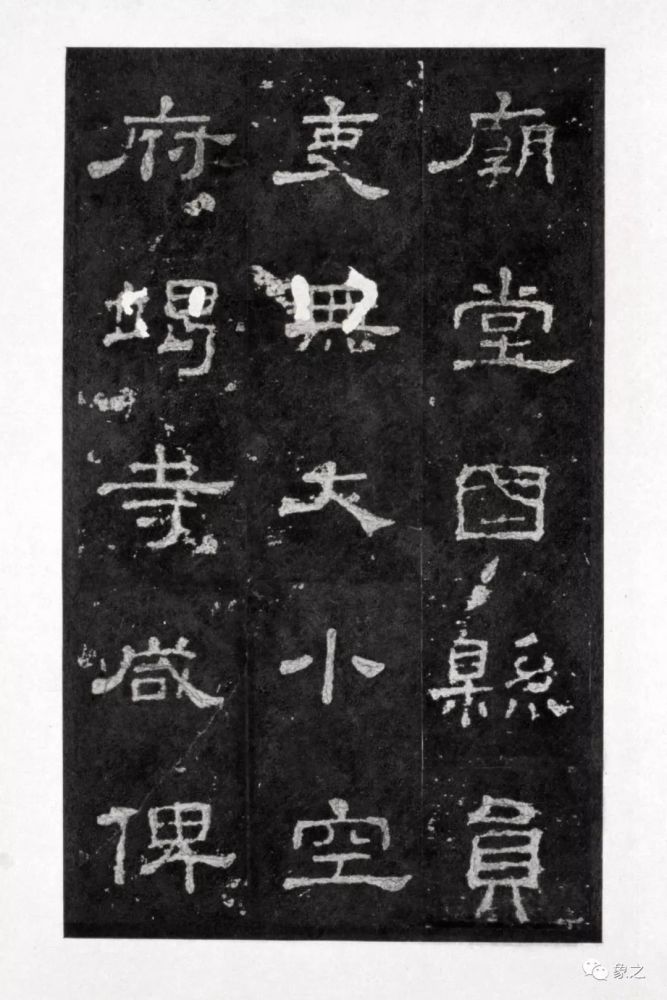 廟堂國縣員
吏無大小空
府竭寺咸俾
象之